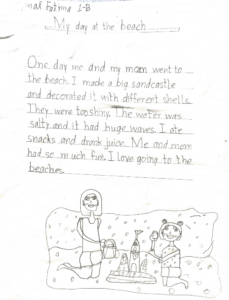 Fatima 2-B
My day at the beach
One day me and my mom went to
the beach. I made a big sandcastle
and decorated it with different shells.
They were too shiny. The water was
salty and it had huge waves. I ate
snacks and drank juice. Me and mom
had so much fun. I love going to the
beaches.